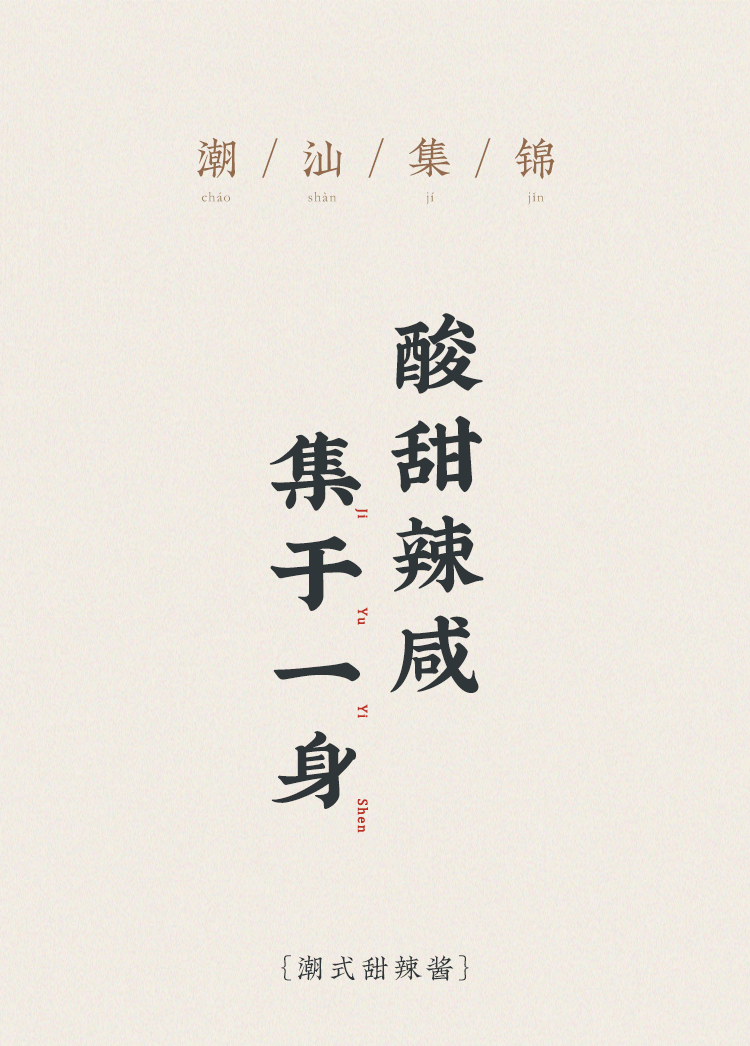 潮/汕/集/锦
cháo shàn jí jǐn
酸甜辣咸
集于一身
Ji Yu Yi Shen
{潮式甜辣酱}